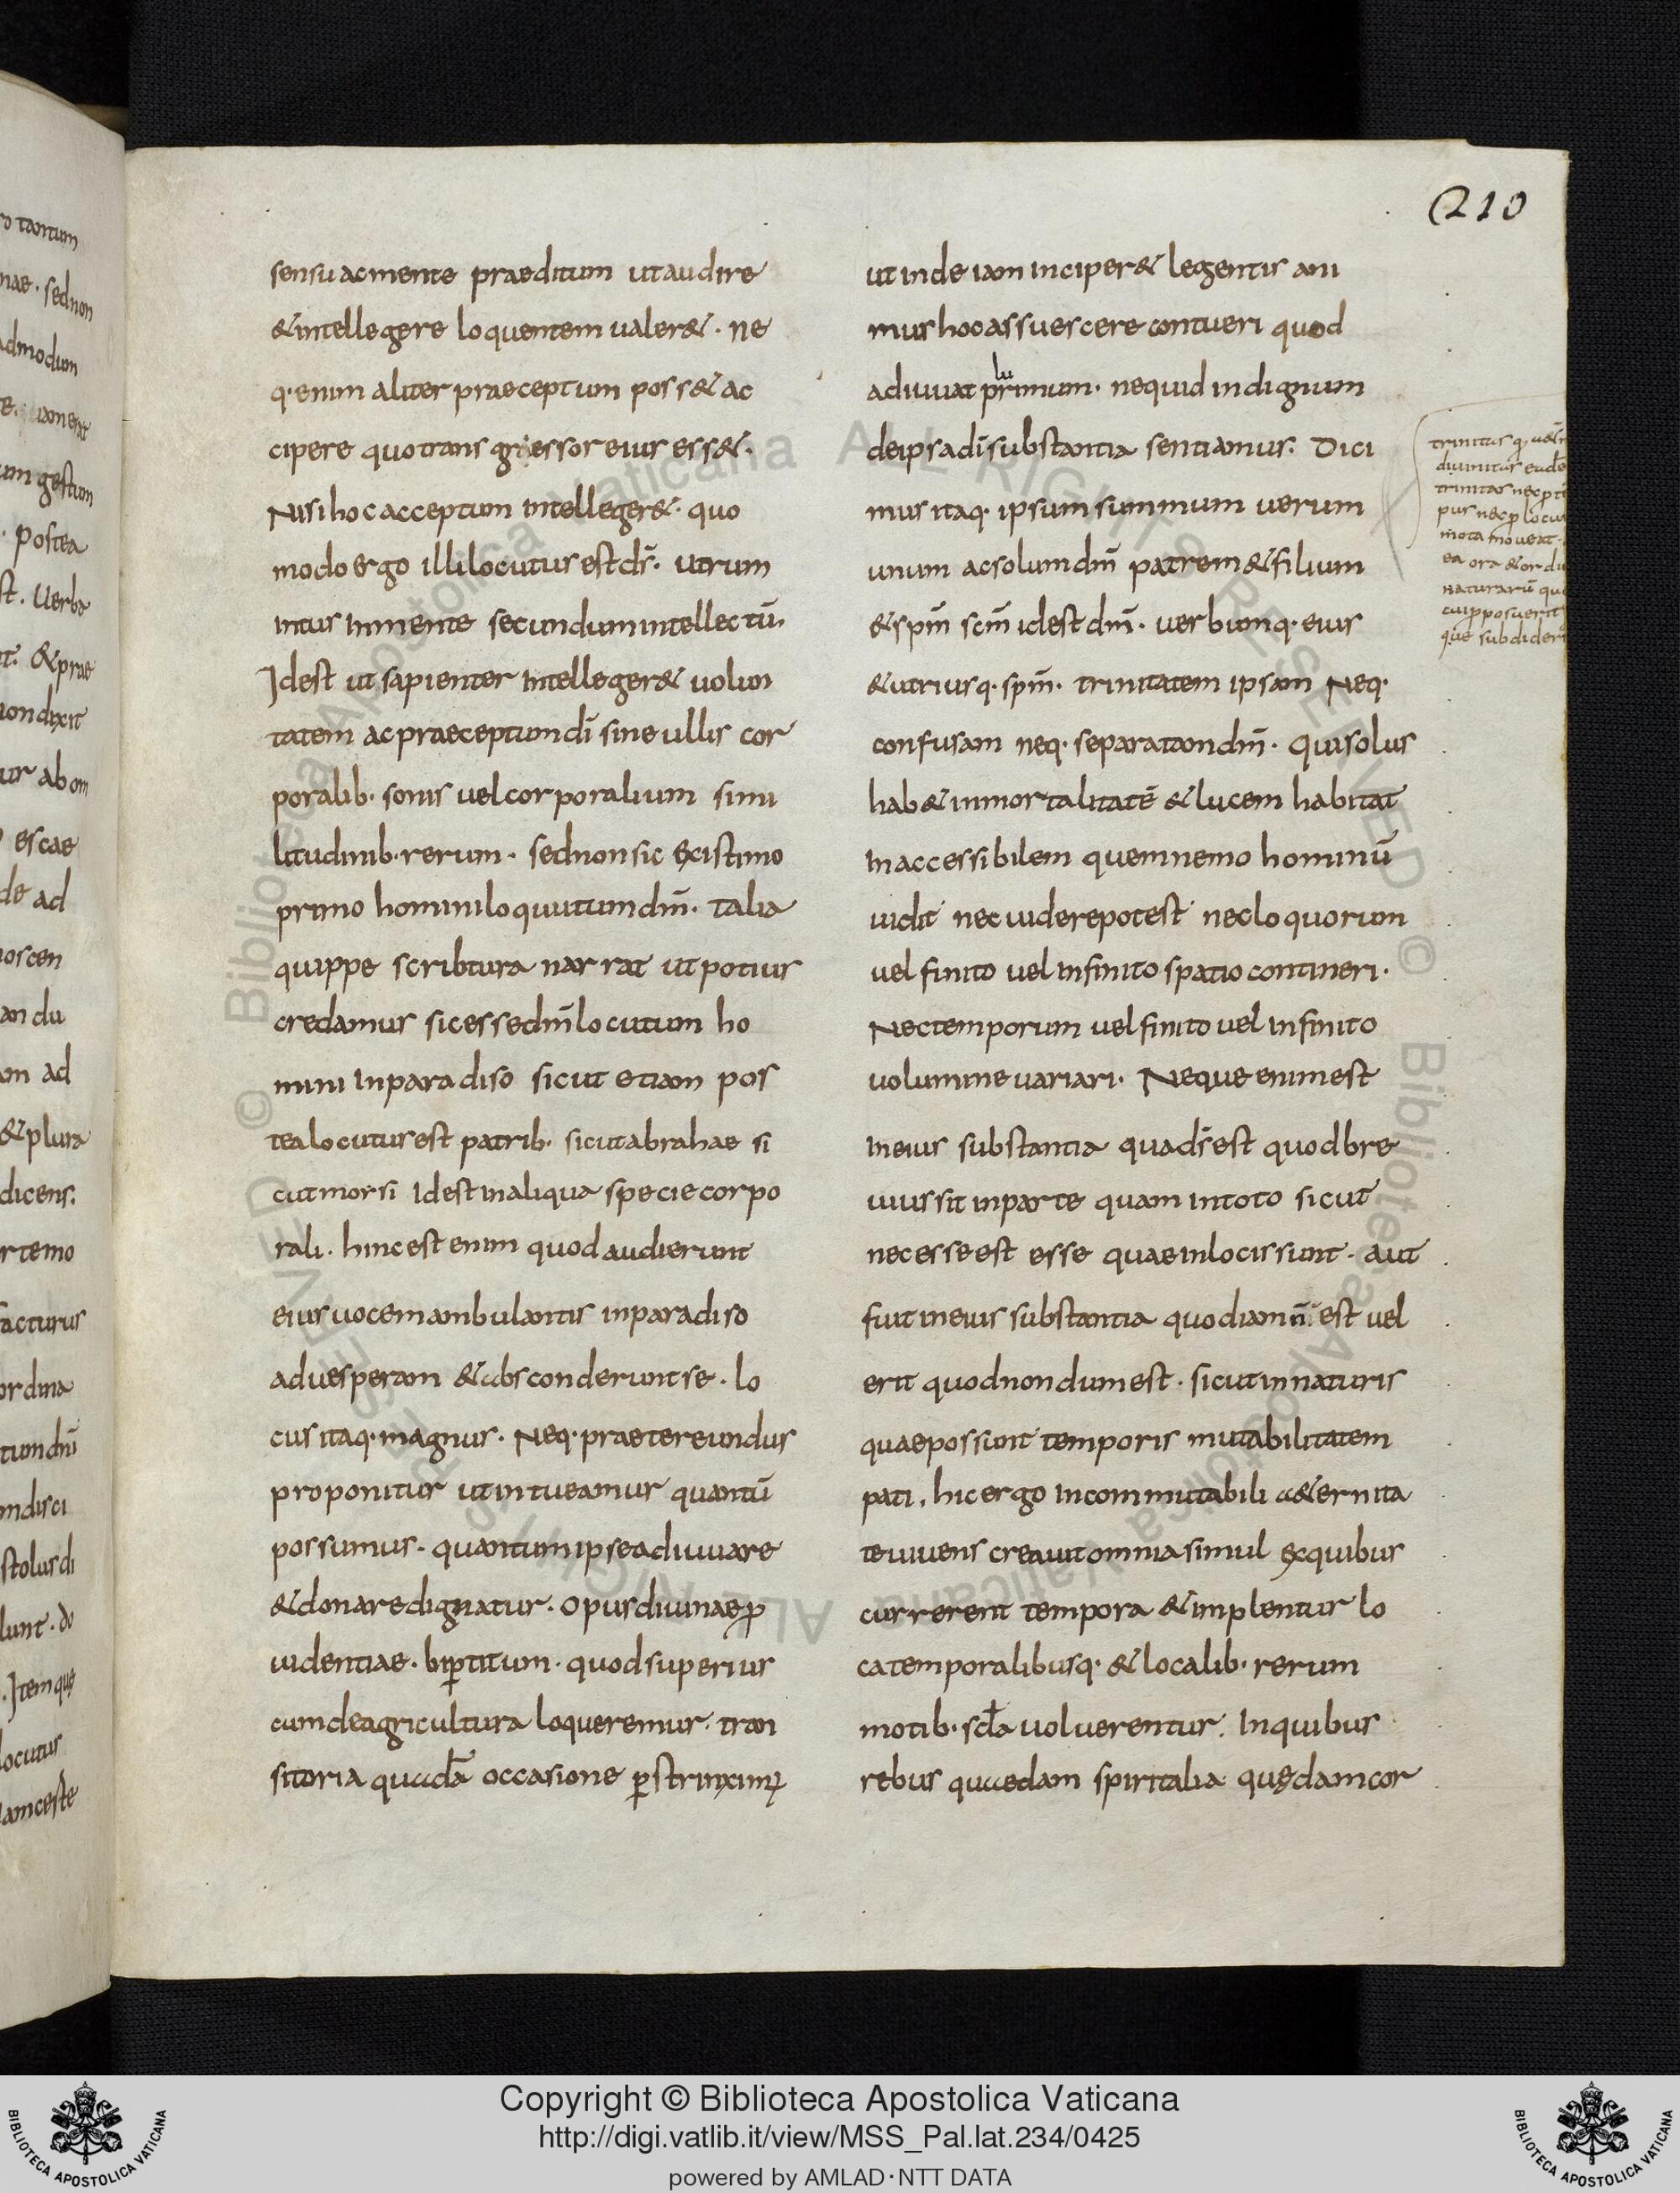 210
sensu ac mente praeditum ut audire
& intellegere loquentem ualer&. ne
q. enim aliter praeceptum poss& ac
cipere quo transgressor eius ess&.
Nisi hoc acceptum intelleger&. quo
modo ergo illi locutus est d̅s. utrum
intus in mente secundum intellectu̅.
Idest ut sapienter intelleger& uolun
tatem ac praeceptum di̅ sine ullis cor
poralib. sonis uel corporalium simi
litudinib. rerum. sed non sic excistimo
primo homini loquutum dm̅. talia
quippe scribtura narrat ut potius
credamus sic esse dm̅ locutum ho
mini in paradiso sicut etiam pos
tea locutus est patrib. sicut abrahae si
cut morsi idest in aliqua specie corpo
rali. hinc est enim quod audierunt
eius uocem ambulantis in paradiso
ad uesperam & absconderunt se. lo
cus itaq. magnus. Neq. praetereundus
proponitur ut intueamur quantu̅
possumus. quantum ipse adiuuare
& donare dignatur. opus diuinae ꝓ
uidentiae. biꝑtitum. quod superius
cum de agricultura loqueremur. tran
sitoria quada̅ occasione ꝑstrinximꝰ
ut inde iam inciper& legentis ani
mus hoc assuescere contueri quod
lu
adiuuat primum. nequid indignum
de ipsa di̅ substantia sentiamus. Dici
mus itaq. ipsum summum uerum
unum ac solum dm̅ patrem & filium
& spm̅ scm̅ idest dm̅. uerbumq. eius
& utriusq. spm̅. trinitatem ipsam Neq.
confusam neq. separatam dm̅. qui solus
hab& inmortalitate̅ & lucem habitat
inaccessibilem quem nemo hominu̅
uidit nec uidere potest nec loquorum
uel finito uel infinito spatio contineri.
Nec temporum uel finito uel infinito
uolumine uariari. Neque enim est
in eius substantia qua d̅s est quod bre
uius sit in parte quam in toto sicut
necesse est esse quae in locis sunt. aut
fuit in eius substantia quod iam n̅. est uel
erit quod nondum est. sicut in naturis
quae possunt temporis mutabilitatem
pati. hic ergo incommutabili a&ernita
te uiuens creauit omnia simul ex quibus
currerent tempora & implentur lo
ca temporalibusq. & localib. rerum
motib. scl̅a uoluerentur. In quibus
rebus quaedam spiritalia quędam cor
trinitas
diuinitas
trinitas nec ꝑ
pus nec ꝑ
mota moueat
& or
naturaru̅
posuerit
Copyright © Biblioteca Apostolica Vaticana
http://digi.vatlib.it/view/MSS_Pal.lat.234/0425
powered by AMLAD·NTT DATA
BIBLIOTECA APOSTOLICA VATICANA
BIBLIOTECA APOSTOLICA VATICANA